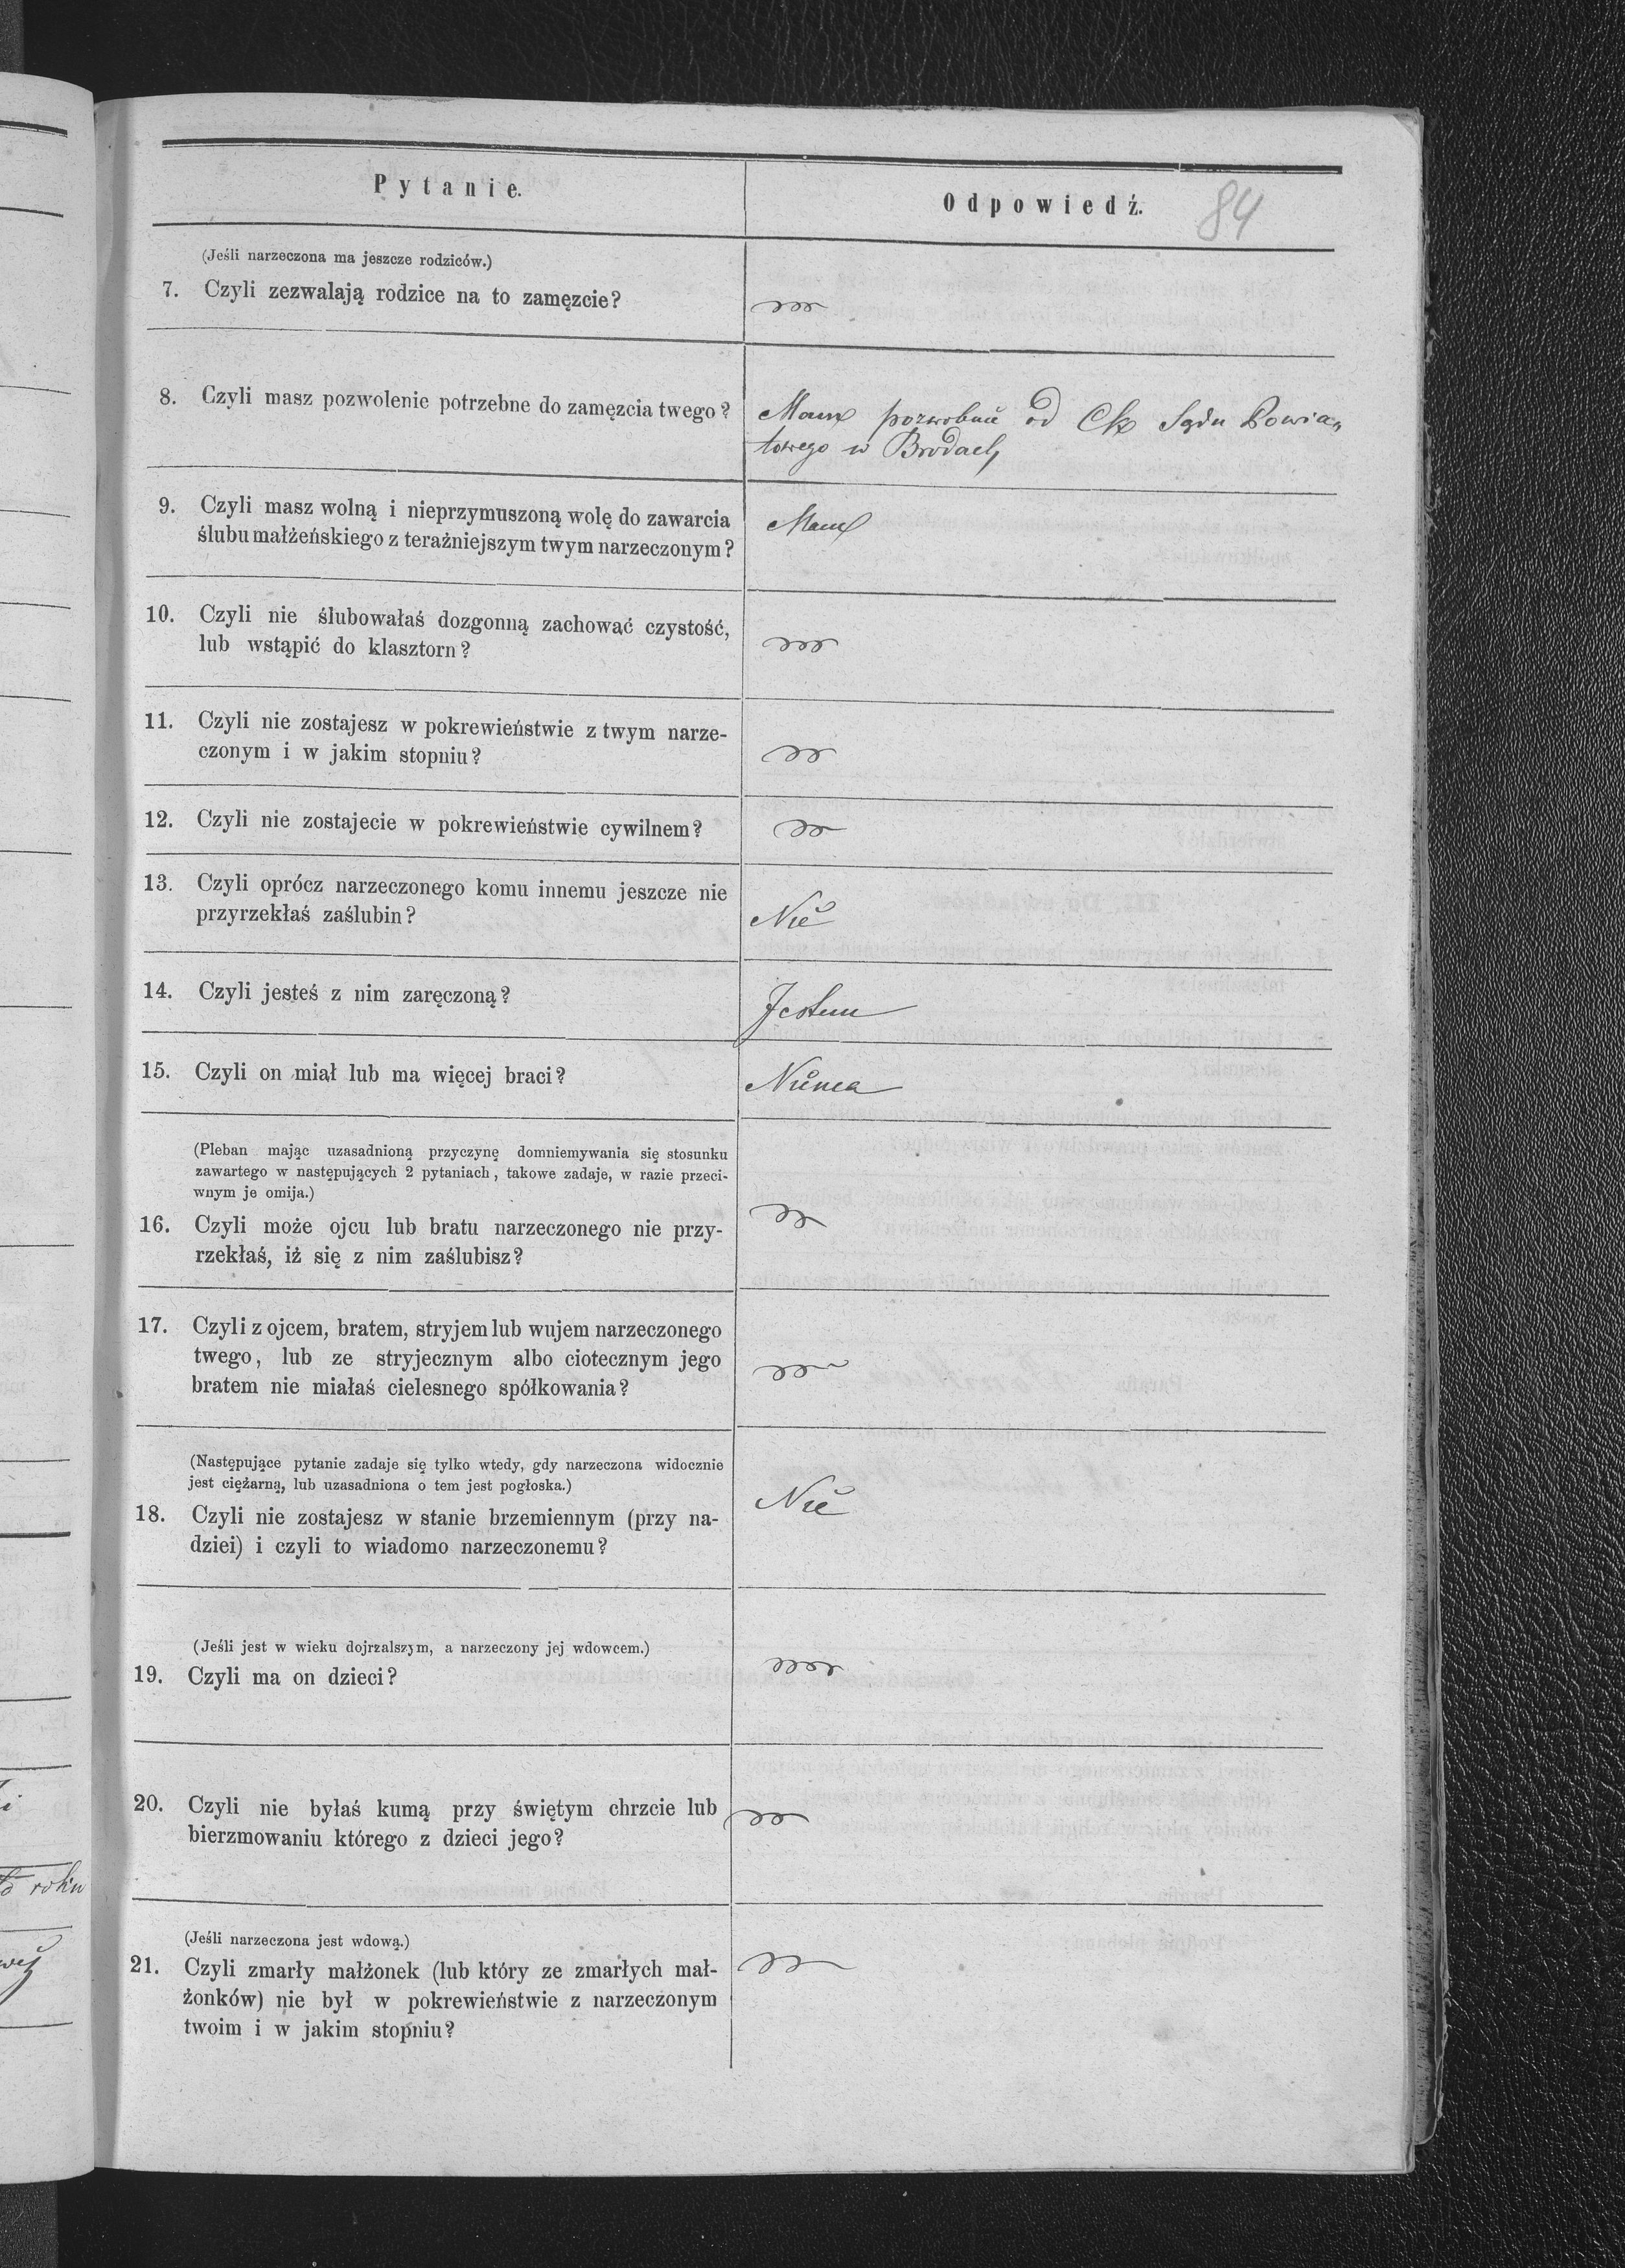 Pytanie.
Odpowiedź.
84
(Jeśli narzeczona ma jeszcze rodziców.)
7. Czyli zezwalają rodzice na to zamęzcie?
8. Czyli masz pozwolenie potrzebne do zamęzcia twego?
Mam pozwolnie od Ck Sądu Powia„
towego w Brodach
9. Czyli masz wolną i nieprzymuszoną wolę do zawarcia
ślubu małżeńskiego z teraźniejszym twym narzeczonym?
Mam
10. Czyli nie ślubowałaś dozgonną zachować czystość,
lub wstąpić do klasztorn?
11. Czyli nie zostajesz w pokrewieństwie z twym narze-
czonym i w jakim stopniu?
12. Czyli nie zostajecie w pokrewieństwie cywilnem?
13. Czyli oprócz narzeczonego komu innemu jeszcze nie
przyrzekłaś zaślubin?
Nie
14. Czyli jesteś z nim zaręczoną?
Jestem
15. Czyli on miał lub ma więcej braci?
Niema
(Pleban mając uzasadnioną przyczynę domniemywania się stosunku
zawartego w następujących 2 pytaniach, takowe zadaje, w razie przeci-
wnym je omija.)
16. Czyli może ojcu lub bratu narzeczonego nie przy-
rzekłaś, iż się z nim zaślubisz?
17. Czyli z ojcem, bratem, stryjem lub wujem narzeczonego
twego, lub ze stryjecznym albo ciotecznym jego
bratem nie miałaś cielesnego spółkowania?
(Następujące pytanie zadaje się tylko wtedy, gdy narzeczona widocznie
jest ciężarną, lub uzasadniona o tem jest pogłoska.)
18. Czyli nie zostajesz w stanie brzemiennym (przy na-
dziei) i czyli to wiadomo narzeczonemu?
Nie
(Jeśli jest w wieku dojrzalszym, a narzeczony jej wdowcem.)
19. Czyli ma on dzieci?
20. Czyli nie byłaś kumą przy świętym chrzcie lub
bierzmowaniu którego z dzieci jego?
(Jeśli narzeczona jest wdową.)
21. Czyli zmarły małżonek (lub który ze zmarłych mał-
żonków) nie był w pokrewieństwie z narzeczonym
twoim i w jakim stopniu?
roku